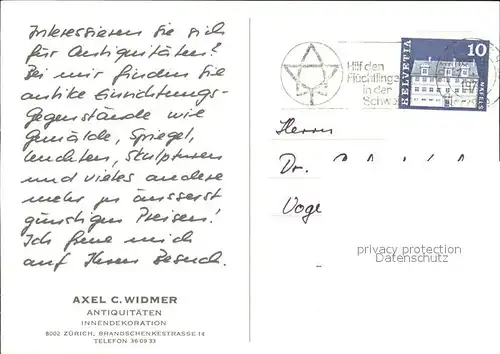 Interessieren Sie sich
für Antiquitäten?
Bei mir finden Sie
antike Einrichtungs-
Gegenstände wie
Gemälde, Spiegel,
Leuchten, Skulpturen
und vieles andere
mehr zu äusserst
günstigen Preisen!
Ich freue mich
auf Ihren Besuch.
AXEL C. WIDMER
ANTIQUITÄTEN
INNENDEKORATION
8002 ZÜRICH, BRANDSCHENKESTRASSE 14
TELEFON 36 09 33
Hilf den
Flüchtlinge
in der
Schw
HELVETIA
10
Herrn
Dr.
Voge
privacy protection
Datenschutz